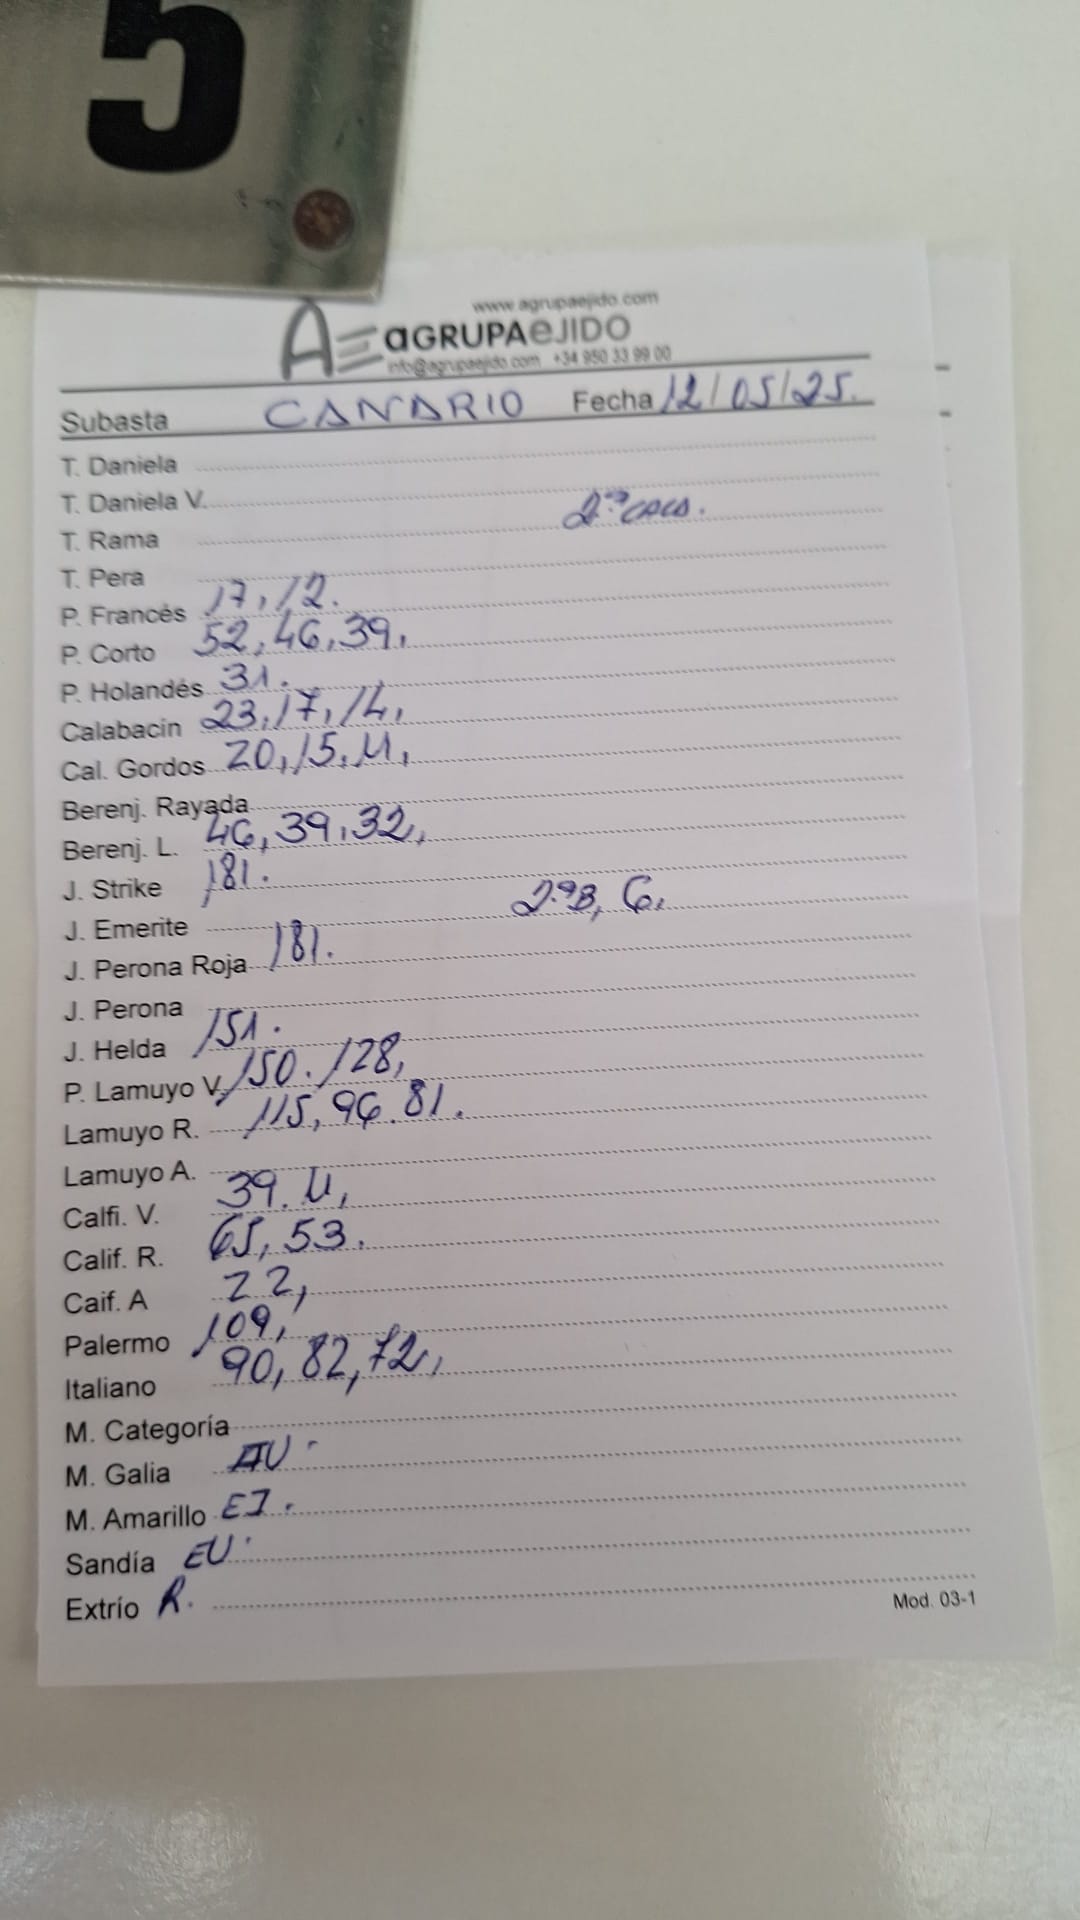 5
www.agrupaejido.com
AE aGRUPAeJIDO
info@agrupaejido.com +34 950 33 99 00
Subasta CANARIO Fecha 12/05/25.
T. Daniela
T. Daniela V.
T. Rama
T. Pera
P. Francés 17, 12.
P. Corto 52, 46, 39,
P. Holandés 31.
Calabacín 23, 17, 14,
Cal. Gordos 20, 15, 11,
Berenj. Rayada
Berenj. L. 46, 39, 32,
J. Strike 181.
J. Emerite 2.ªB, 6,
J. Perona Roja 181.
J. Perona
J. Helda 151.
P. Lamuyo V. 150. 128,
Lamuyo R. 115, 96. 81.
Lamuyo A.
Calfi. V. 39. 11,
Calif. R. 65, 53.
Caif. A 22,
Palermo 109,
Italiano 90, 82, 72,
M. Categoría
M. Galia
M. Amarillo EJ.
Sandía EU.
Extrío R.
Mod. 03-1